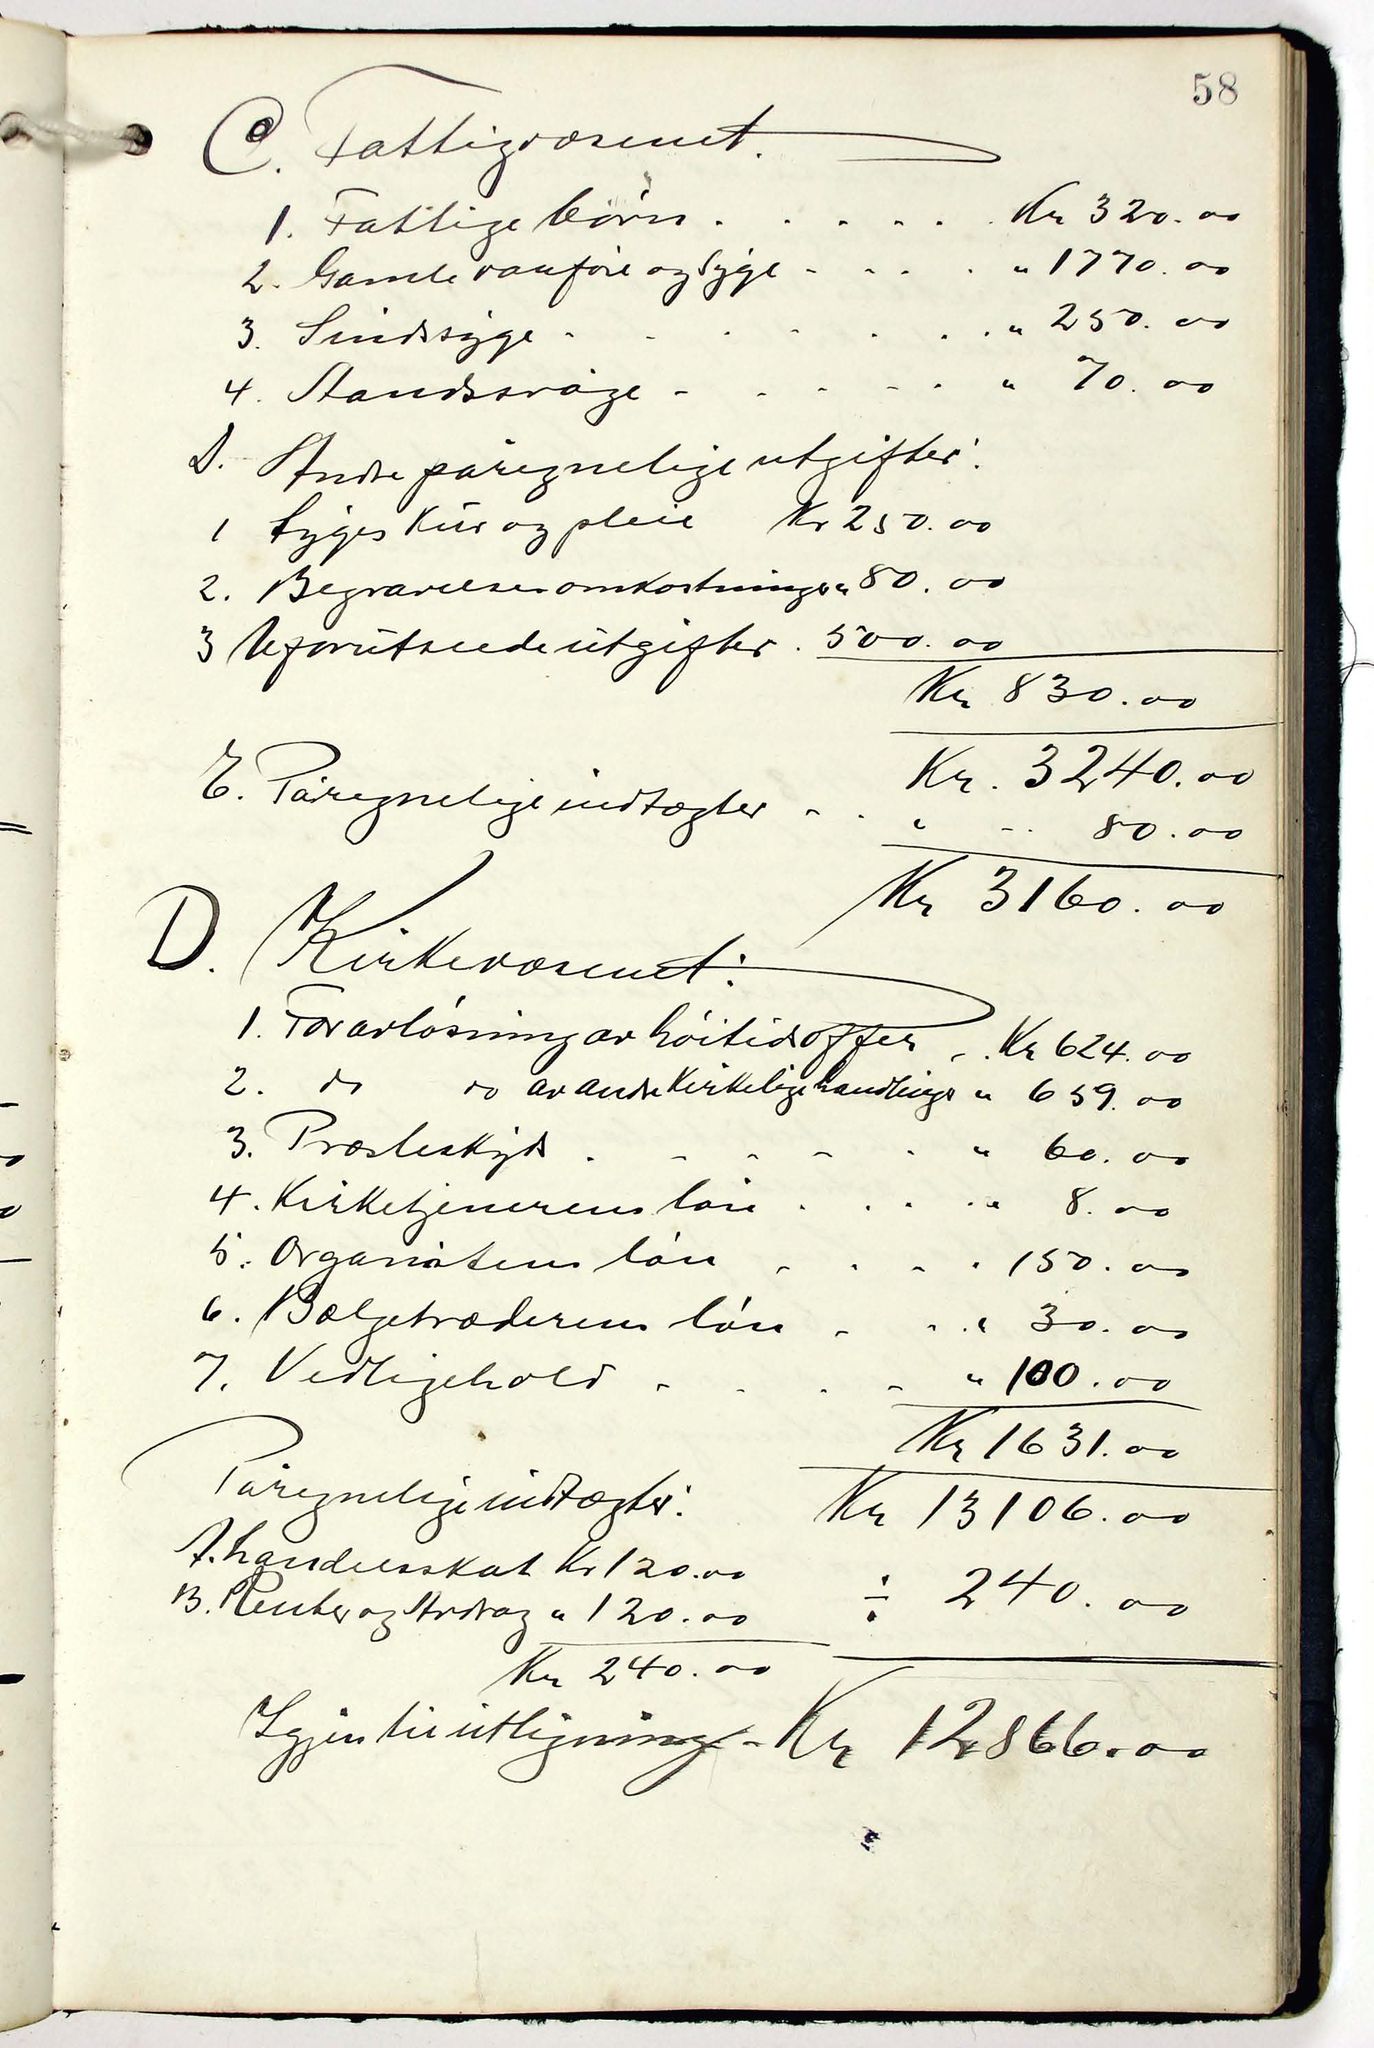 58
C. Fattigvæsenet.
1. Fattige börn . . . . . . Kr 320.00
2. Gamle vanföre og syge - - . . " 1770.00
3. Sindssyge - - . - . . . " 250.00
4. Aandssvage - - - - . " 70.00
D. Andre påregnelige utgifter:
1 Syges Kur og pleie Kr 250.00
2. Begravelsesomkostninger " 80.00
3 Uforutseede utgifter . 500.00
Kr 830.00
Kr. 3240.00
E. Påregnelige indtægter - . " - . 80.00
Kr 3160.00
D. Kirkevæsenet:
1. For avlösning av höitidsoffer - . Kr 624.00
2. do do av andre Kirkelige handlinger " 659.00
3. Presteskyds . - - - - . " 60.00
4. Kirketjenerens lön . . . . " 8.00
5. Organistens lön - . - . 150.00
6. Belgetræderens lön - . . " 30.00
7. Vedligehold - - . - " 100.00
Kr 1631.00
Kr 13106.00
Påregnelige indtægter:
A. Handelsskat Kr 120.00
÷ 240.00
B. Renter og Avdrag " 120.00
Kr 240.00
Igjen til utligning - Kr 12,866.00